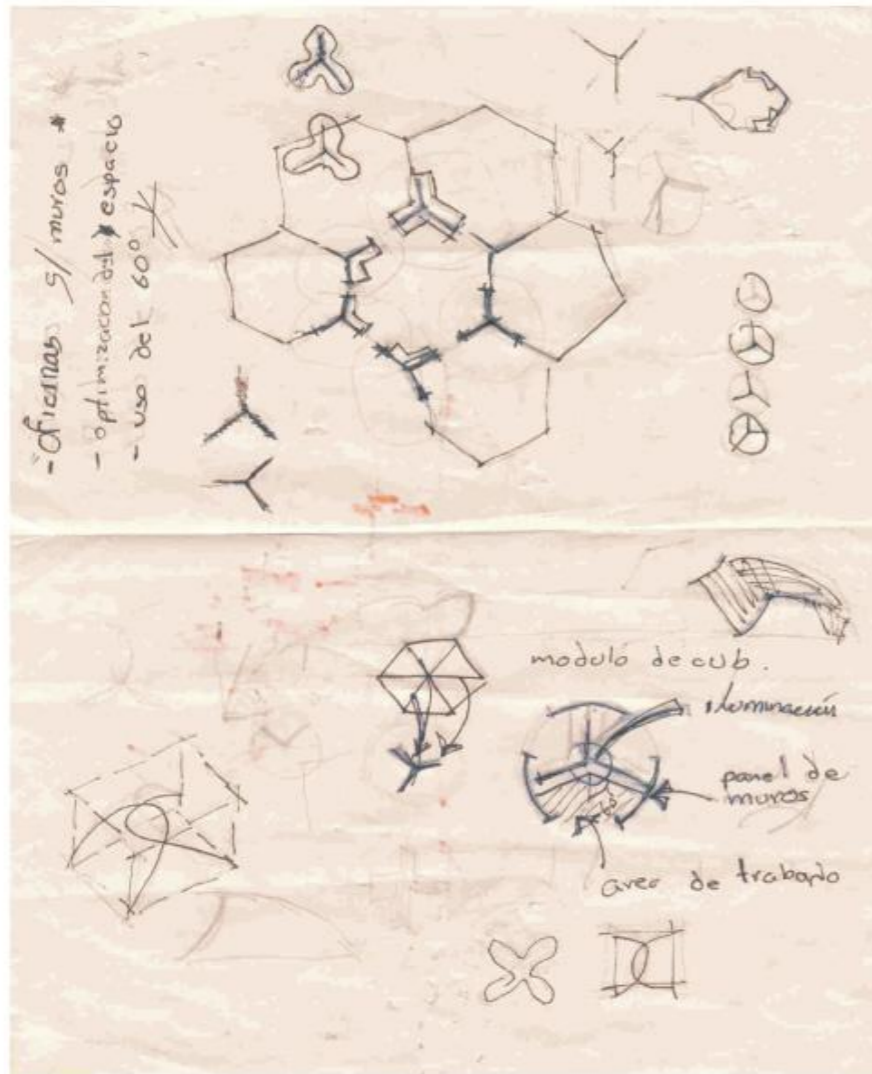 - oficinas s/ muros *
- optimizacion del espacio
- uso del 60°
modulo de cub.
iluminación
panel de
muros
area de trabajo